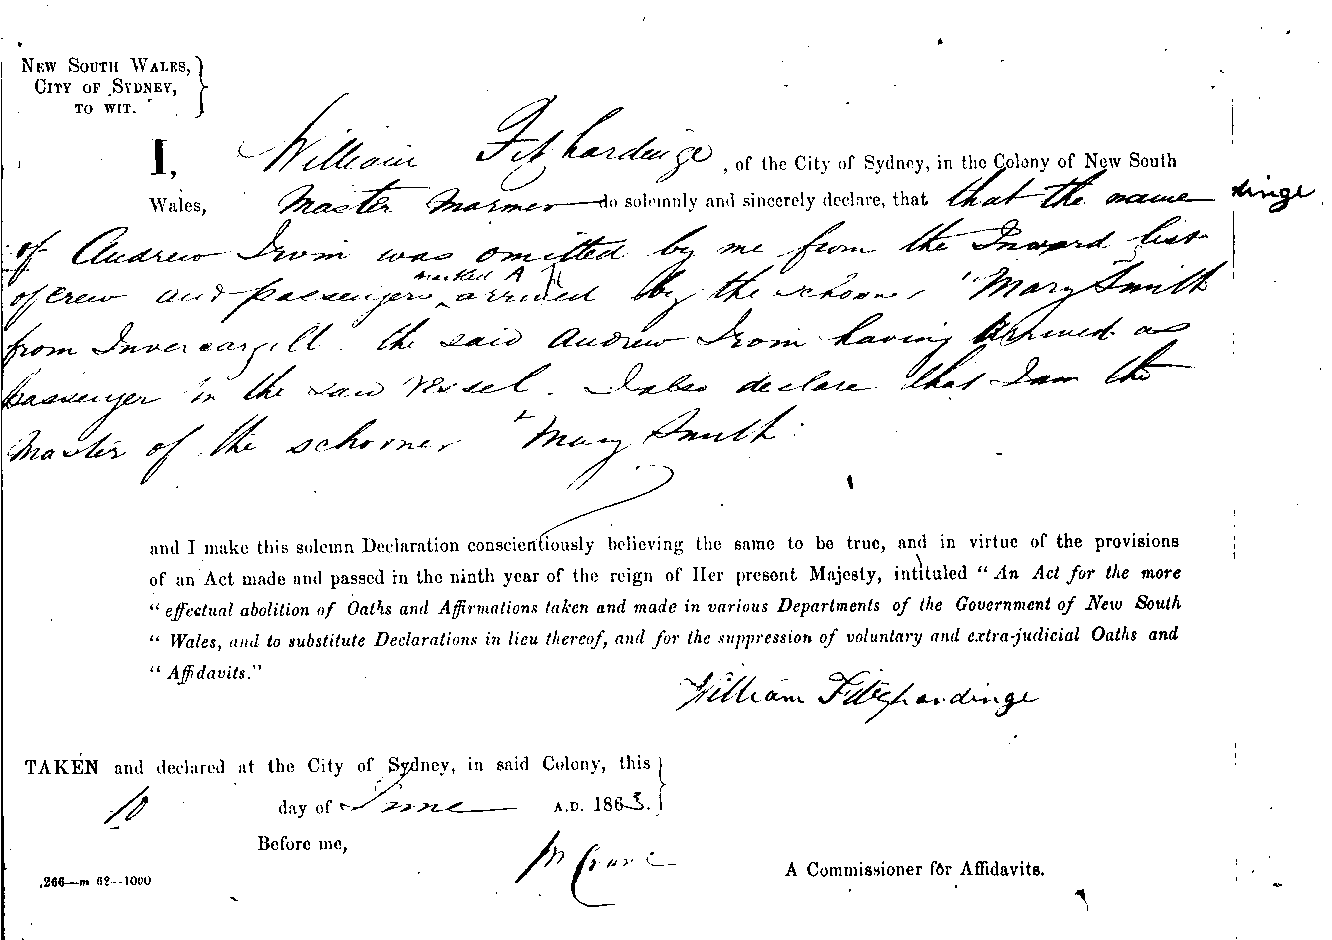 NEW SOUTH WALES,
CITY OF SYDNEY,
TO WIT.
I, William Fitzhardinge, of the City of Sydney, in the Colony of New South
Wales, Master Mariner do solemnly and sincerely declare, that that the name dinge
of Andrew Irvin was omitted by me from the Inward list
of crew and passengers marked A arrived by the schooner "Mary Smith
from Invercargill. the said Andrew Irvin having Arrived as
passenger in the said Vessel. I also declare that I am the
Master of the schooner "Mary Smith"
and I make this solemn Declaration conscientiously believing the same to be true, and in virtue of the provisions
of an Act made and passed in the ninth year of the reign of Her present Majesty, intituled "An Act for the more
"effectual abolition of Oaths and Affirmations taken and made in various Departments of the Government of New South
"Wales, and to substitute Declarations in lieu thereof, and for the suppression of voluntary and extra-judicial Oaths and
"Affidavits."
William Fitzhardinge
TAKEN and declared at the City of Sydney, in said Colony, this
10 day of June A.D. 1863.
Before me,
A Commissioner for Affidavits.
266—m 62--1000